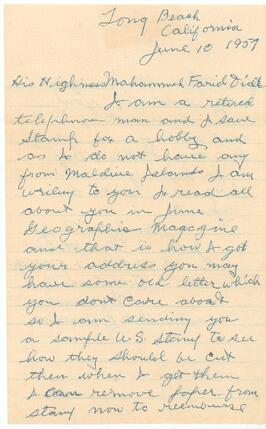 Long Beach
California
June 10 1957
His Highness Mahammed Farid Didi
I am a retired
telephone man and I save
Stamp for a hobby and
as I do not have any
from Maldive Islands I am
writing to you I read all
about you in June
Geographic Magazine
and that is how I got
your address you may
have some old letter which
you dont care about
so I am sending you
a sample U.S. Stamp to see
how they should be cut
then when I get them
I can remove paper from
stamp now to reemburse